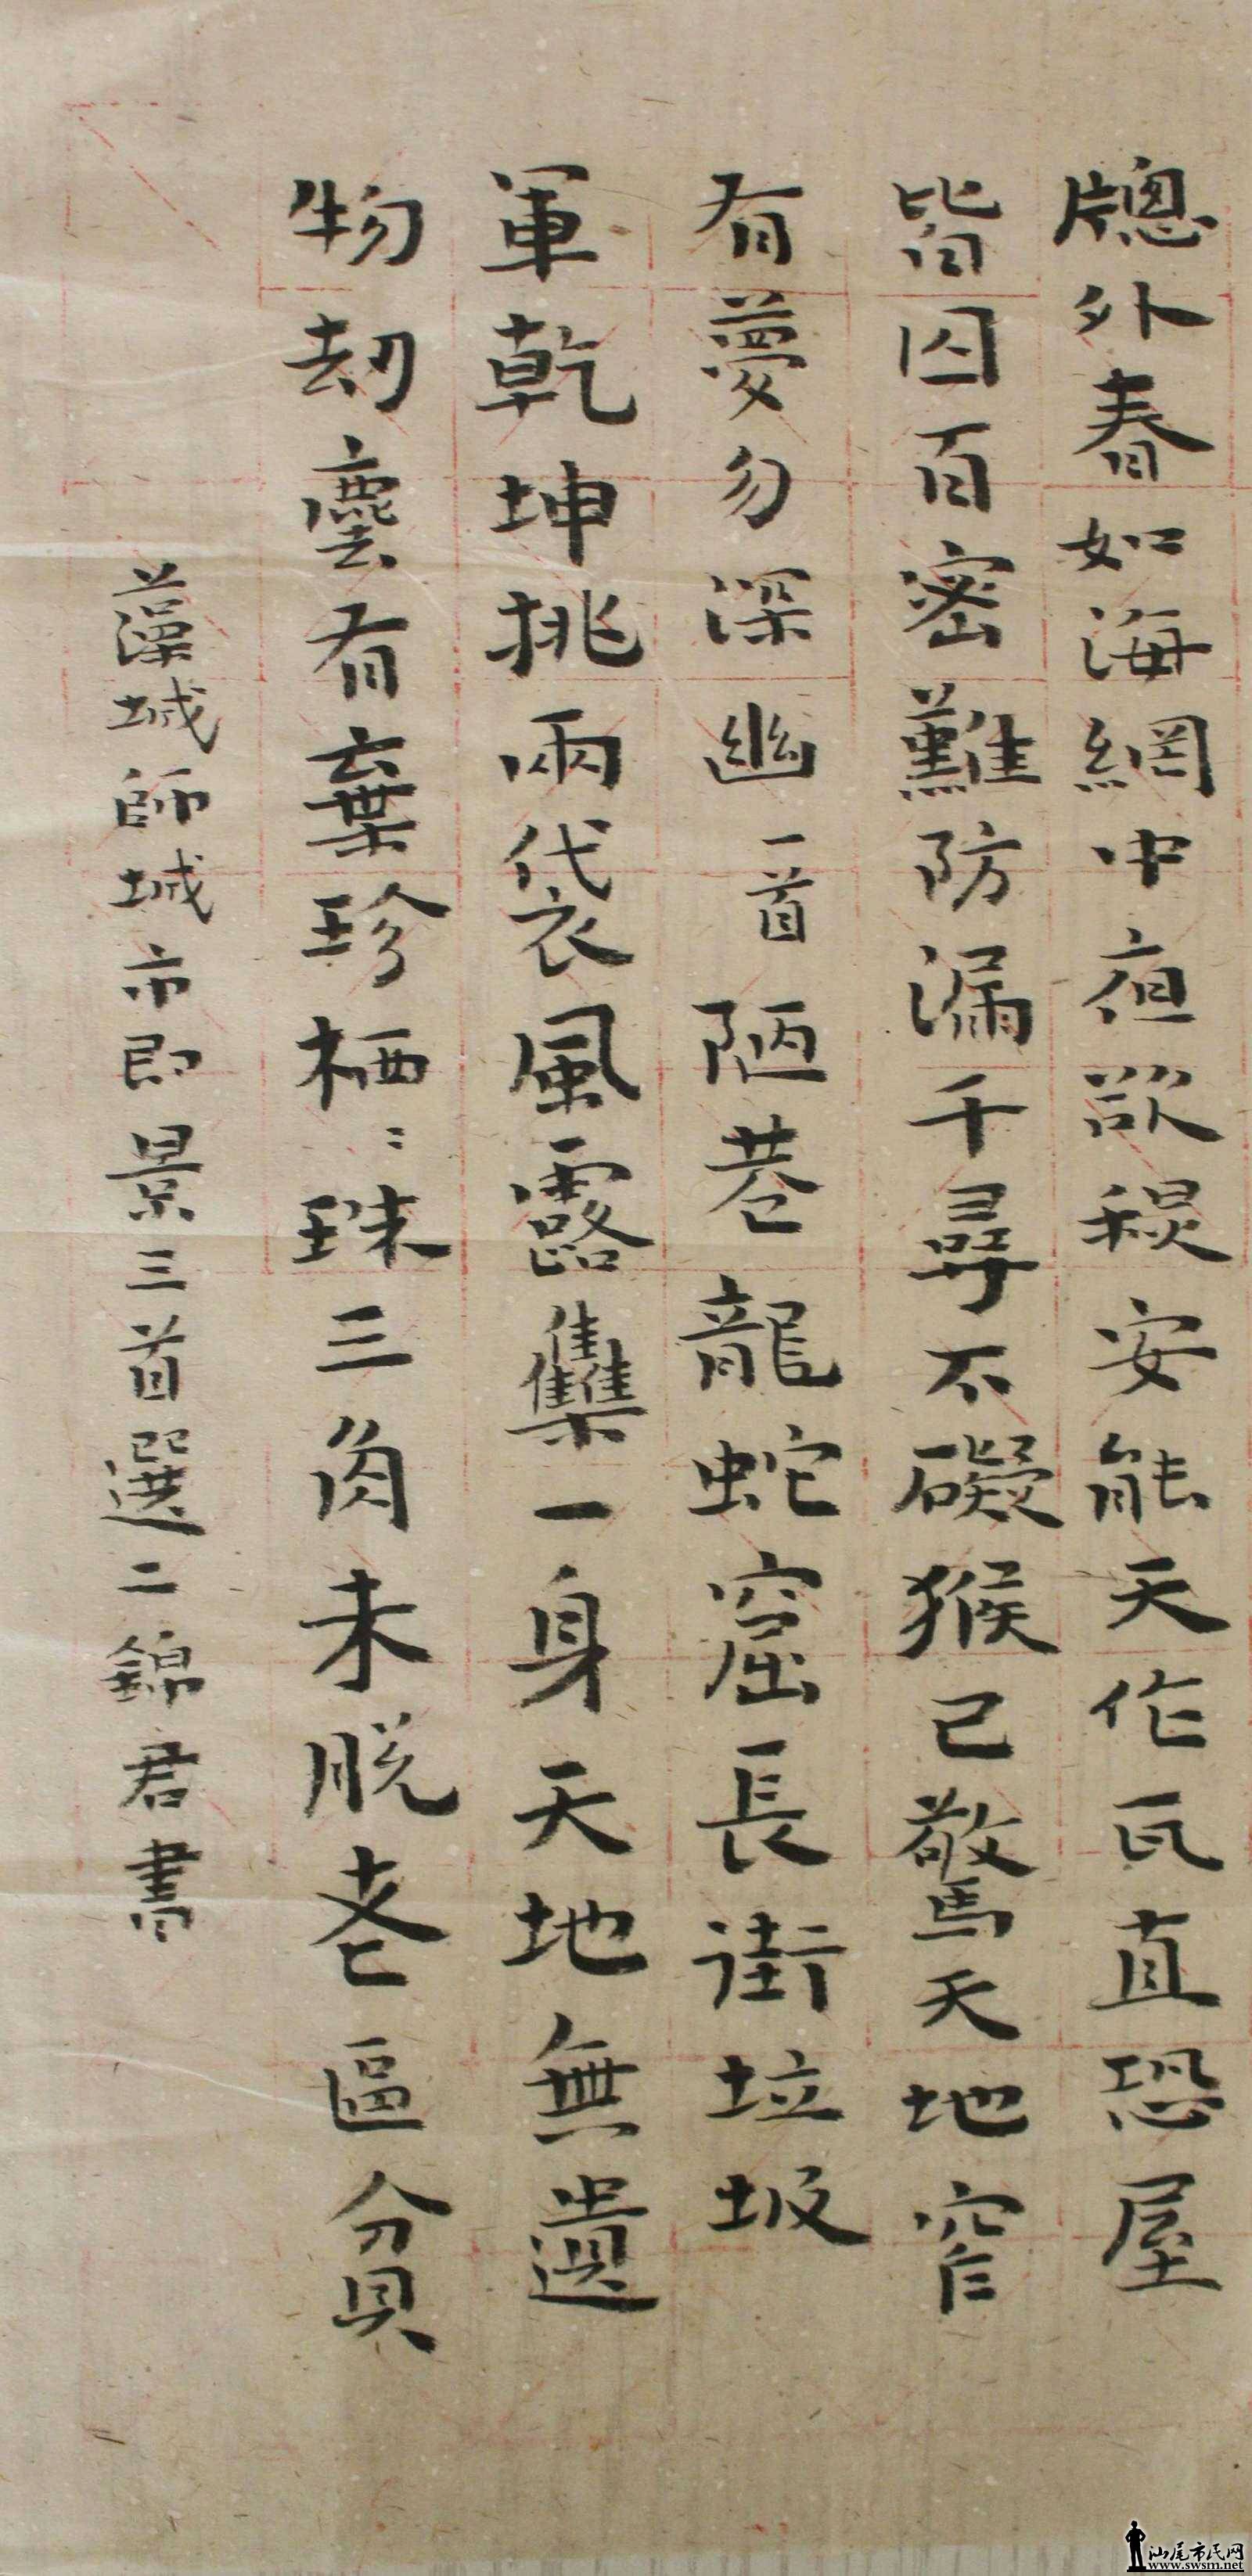 牕外春如海網中夜欲稠安能天作瓦直恐屋
皆囚百密難防漏千尋不礙猴已驚天地窄
有夢勿深幽 一首 陋巷龍蛇窟長街垃圾
軍乾坤挑兩袋風露集一身天地無遺
物劫塵有棄珍栖〻珠三角未脱老區貧
藻城師城市即景三首選二錦君書
汕尾市民网
www.swsm.net